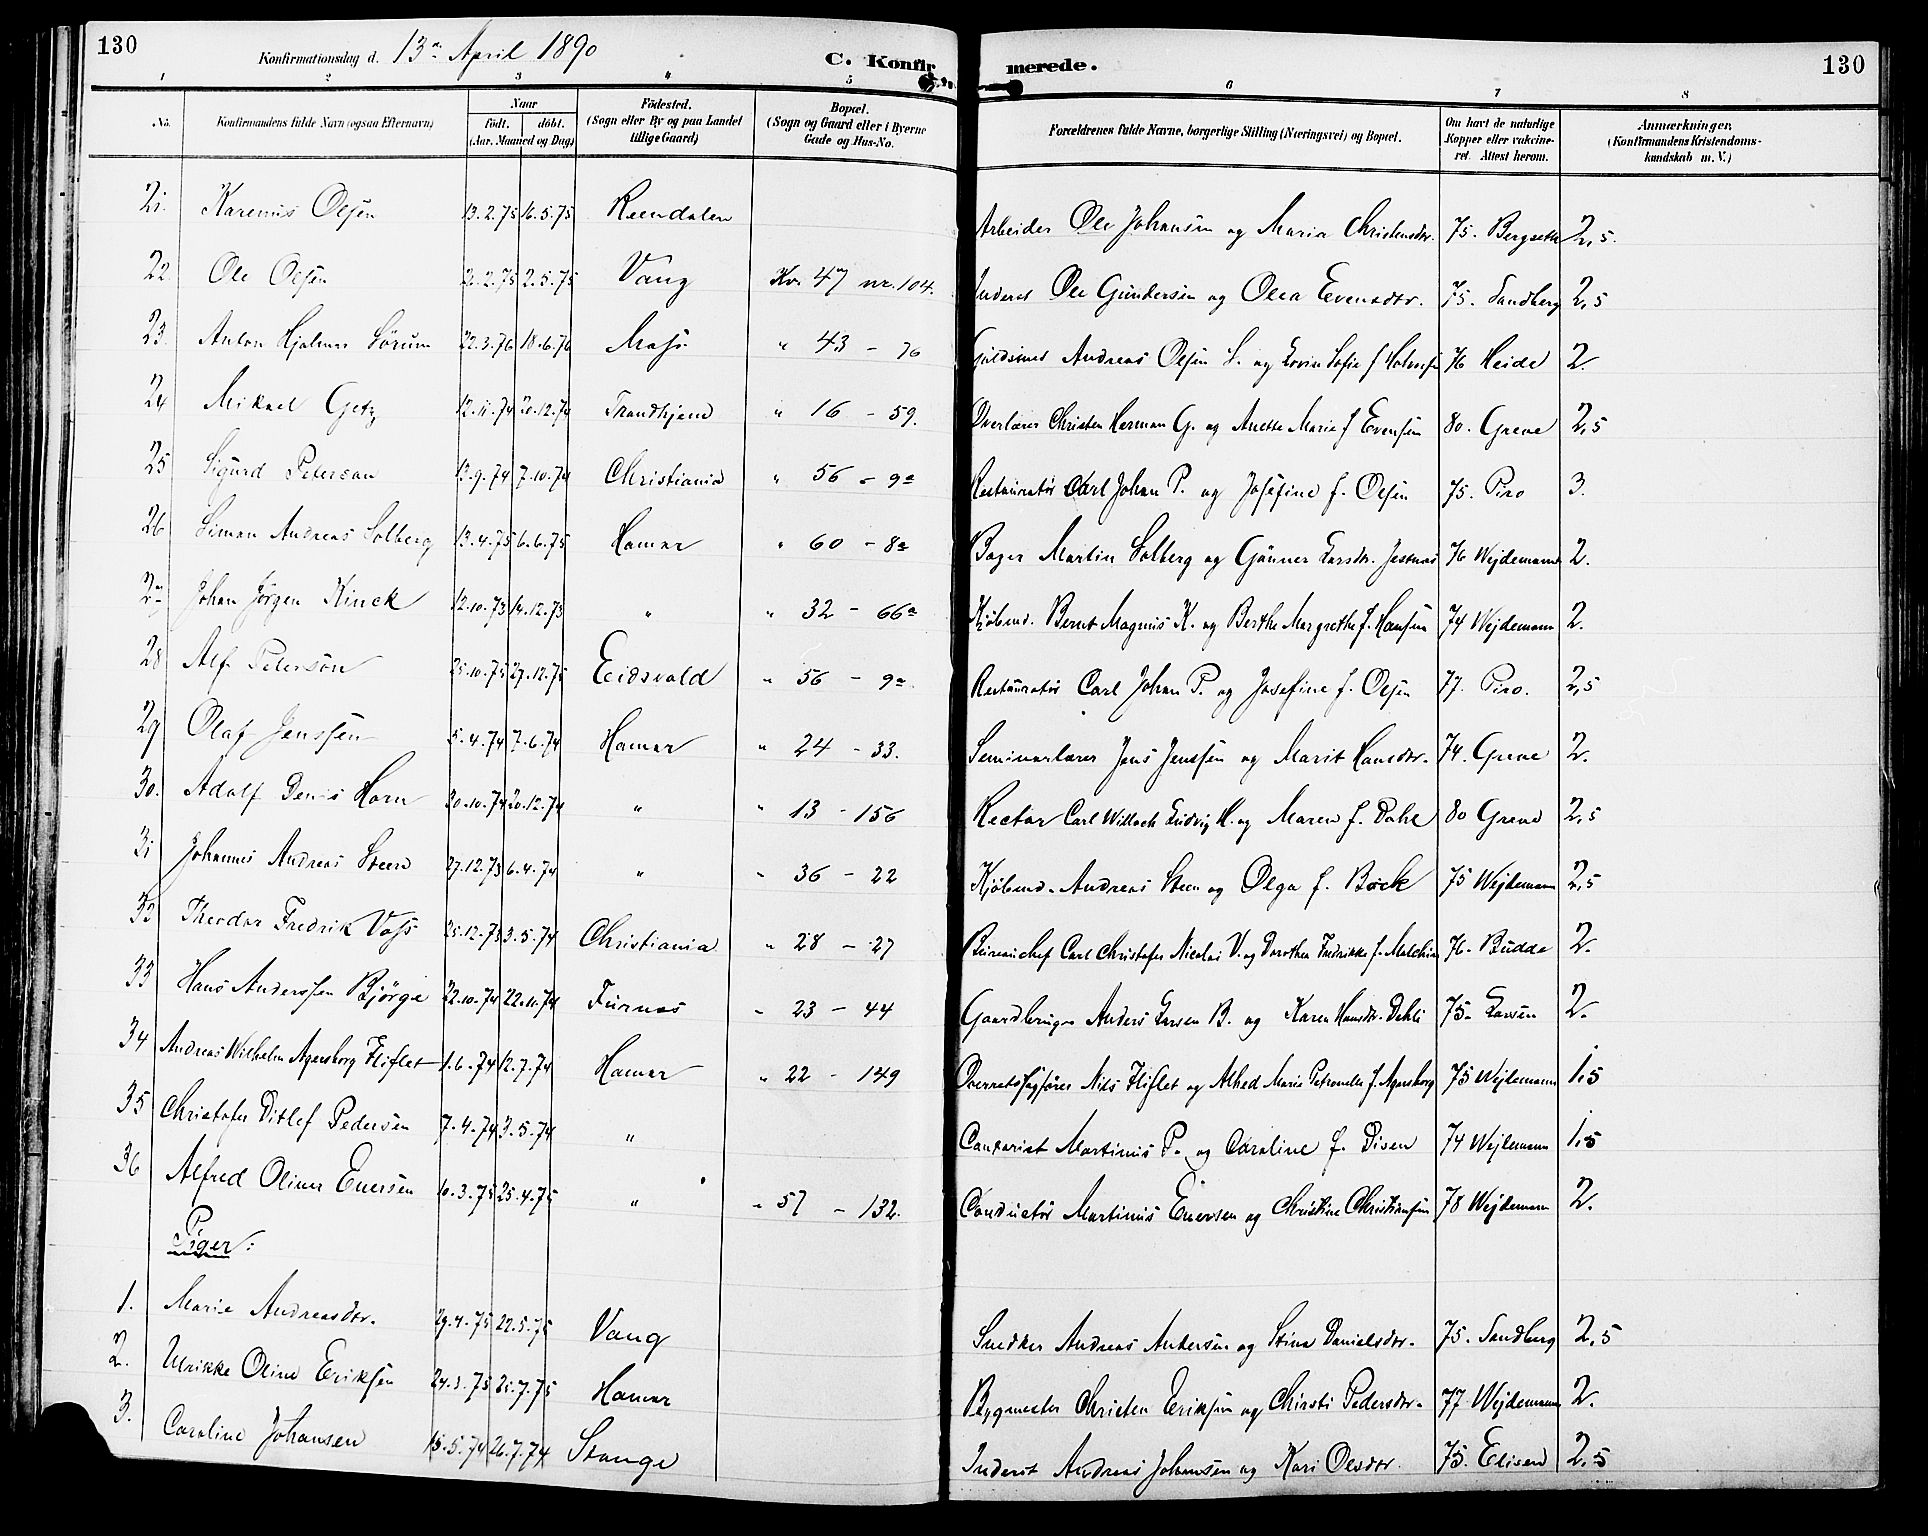 130
Konfirmationsdag d. 13de April 1890
C. Konfirmerede.
130
1 2 3 4 5 6 7 8
No.
Konfirmandens fulde Navn (ogsaa Efternavn)
Naar
födt. döbt.
(Aar, Maaned og Dag)
Födested.
(Sogn eller By og paa Landet
tillige Gaard)
Bopæl.
(Sogn og Gaard eller i Byerne
Gade og Hus-No.
Forældrenes fulde Navne, borgerlige Stilling (Næringsvei) og Bopæl.
Om havt de naturlige
Kopper eller vakcine-
ret. Attest herom.
Anmærkninger.
(Konfirmandens Kristendoms-
kundskab m. V.)
21. Karenus Olsen 13.2.75 16.5.75 Arbeider Ole Johansen og Maria Christensdtr. 75. Bergseth 2,5.
22 Ole Olsen 2.2.75 2.5.75 Vang Kv. 47 nr. 104. Inderst Ole Gundersen og Olea Evensdtr. 75. Sandberg 2,5
23. Anton Hjalmar Sörum 22.3.76 18.6.76 Moss " 43 - 76 Guldsmed Andreas Olsen S. og Lovise Sofie f Holmsen 76 Heide 2.
24 Mikael Getz 12.11.74 20.12.74 Trondhjem " 16 - 59. Overlærer Christen Herman G. og Anette Marie f Evensen 80. Greve 2,5
25 Sigurd Peterson 13.9.74 7.10.74 Christiania " 56 - 9a Restauratör Carl Johan P. og Josefine f. Olsen 75. Piro 3.
26 Simon Andreas Solberg 13.4.75 6.6.75 Hamar " 60 - 8a Bager Martin Solberg og Gunner Larsdtr. 76 Wejdemann 2.
27 Johan Jörgen Kinck 12.10.73 14.12.73 " " 32 - 66a Kjöbmd. Bernt Magnus K. og Berthe Margrethe f. Hansen 74 Wejdemann 2.
28 Alf Peterson 25.10.75 27.12.75 Eidsvold " 56 - 9a Restauratör Carl Johan P. og Josefine f. Olsen 77. Piro. 2,5
29 Olaf Janssen 5.4.74 7.6.74 Hamar " 24 - 33. Seminarlærer Jens Jenssen og Marit Hansdtr. 74. Greve 2.
30. Adolf Denis Horn 30.10.74 20.12.74 " " 13 - 156 Rector Carl Willoch Ludvig H. og Maren f. Dahl 80 Greve 2,5
31 Johannes Andreas Steen 27.12.73 6.4.74 " " 36 - 22 Kjöbmd. Andreas Steen og Olga f. Böck 75 Wejdemann 2,5
Theodor Fredrik Voss 25.12.73 3.5.74 Christiania " 28 - 27 Bureauchef Carl Christofer Nicolai V. og Dorothea Fredrikke f. 76. Budde 2.
33 Hans Anderssen Bjørge 22.10.74 22.11.74 Furnes " 23 - 44 Gaardbruger Anders Larsen B. og Karen Hansdtr. Dehli 75. Larsen 2.
34 Andreas Wilhelm Agersborg Hiflet 1.6.74 12.7.74 Hamar " 22 - 149 Overretssagförer Nils Hiflet og Alhed Marie Petronelle f. Agersborg 75 Wejdemann 1,5
35 Christofer Ditlef Pedersen 7.4.74 3.5.74 " Contorist Martinus P. og Caroline f. Disen 74 Wejdemann 1,5
36 Alfred Oliner Enersen 10.3.75 25.4.75 " " 57 - 132. Conductör Martinus Enersen og Christine Christiansen 78 Wejdemann 2.
Piger:
1. Marie Andreasdtr. 29.4.75 22.5.75 Vang Snedker Andreas Andersen og Stine Danielsdtr. 75. Sandberg 2,5
2. Ulrikke Oline Eriksen 24.3.75 25.7.75 Hamar Bygmester Christen Eriksen og Chirsti Pedersdtr. 77 Wejdemann 2.
3. Caroline Johansen 15.5.74 26.7.74 Stange Inderst Andreas Johansen og Kari Olsdtr. 75. Elisen 2,5